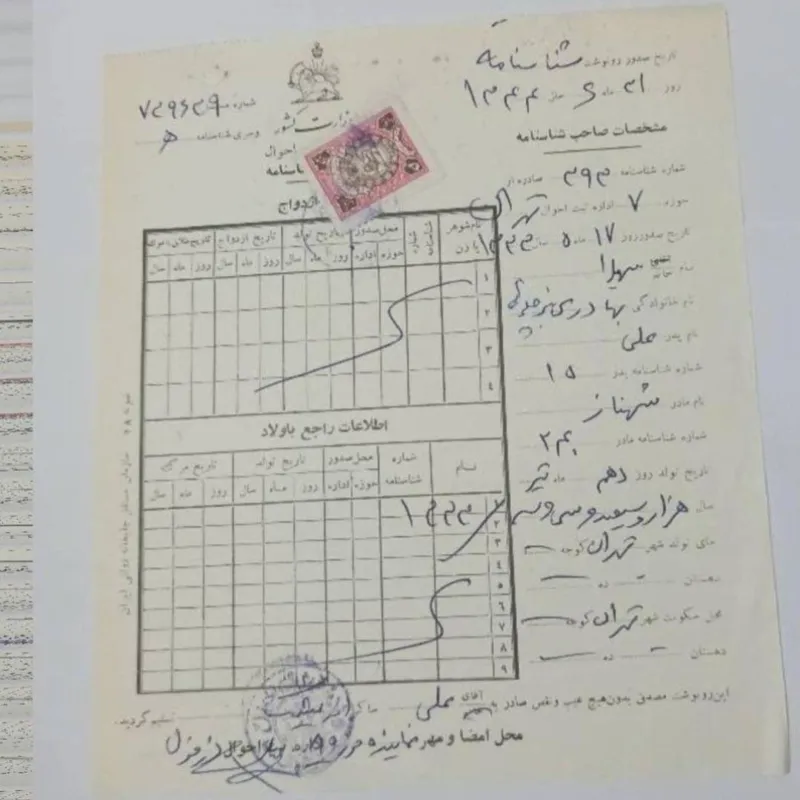 تاریخ صدور رونوشت شناسنامه
روز ۳۱ ماه ۶ سال ۱۳۴۴
مشخصات صاحب شناسنامه
شماره شناسنامه ۳۹۳ صادره از
حوزه ۷ اداره ثبت احوال تهران
تاریخ صدور روز ۱۷ ماه ۵ سال ۱۳۳۳
نام سهیلا
نام خانوادگی بهادری
نام پدر علی
شماره شناسنامه پدر ۱۵
نام مادر شهناز
شماره شناسنامه مادر
تاریخ تولد روز دهم ماه تیر
سال هزار و سیصد و سی و سه
جای تولد شهر تهران کوچه
دهستان ده
محل سکونت شهر تهران کوچه
دهستان ده
شماره
وسری شناسنامه ه
وزارت کشور
احوال
ازدواج
نام شوهر یا زن
شماره شناسنامه
محل صدور
تاریخ تولد
تاریخ ازدواج
حوزه اداره روز ماه سال روز ماه سال روز ماه سال
۱
۲
۳
۴
اطلاعات راجع باولاد
نام
شماره شناسنامه
محل صدور
تاریخ تولد
تاریخ مرگ
حوزه اداره روز ماه سال روز ماه سال
۱ ۱۳۳۳
۲
۳
۴
۵
۶
۷
۸
۹
این رونوشت مصدق بدون هیچ عیب و نقص صادر به آقای علی تسلیم گردید.
محل امضا و مهر نماینده حوزه احوال